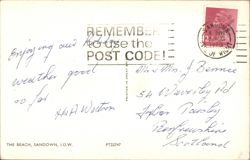 REMEMBER
to use the
POST CODE!
Enjoying our
weather good
so far
Mr & Mrs J
54 Waverley Rd
Paisley
Renfrewshire
Scotland
THE BEACH, SANDOWN, I.O.W.
PT22747